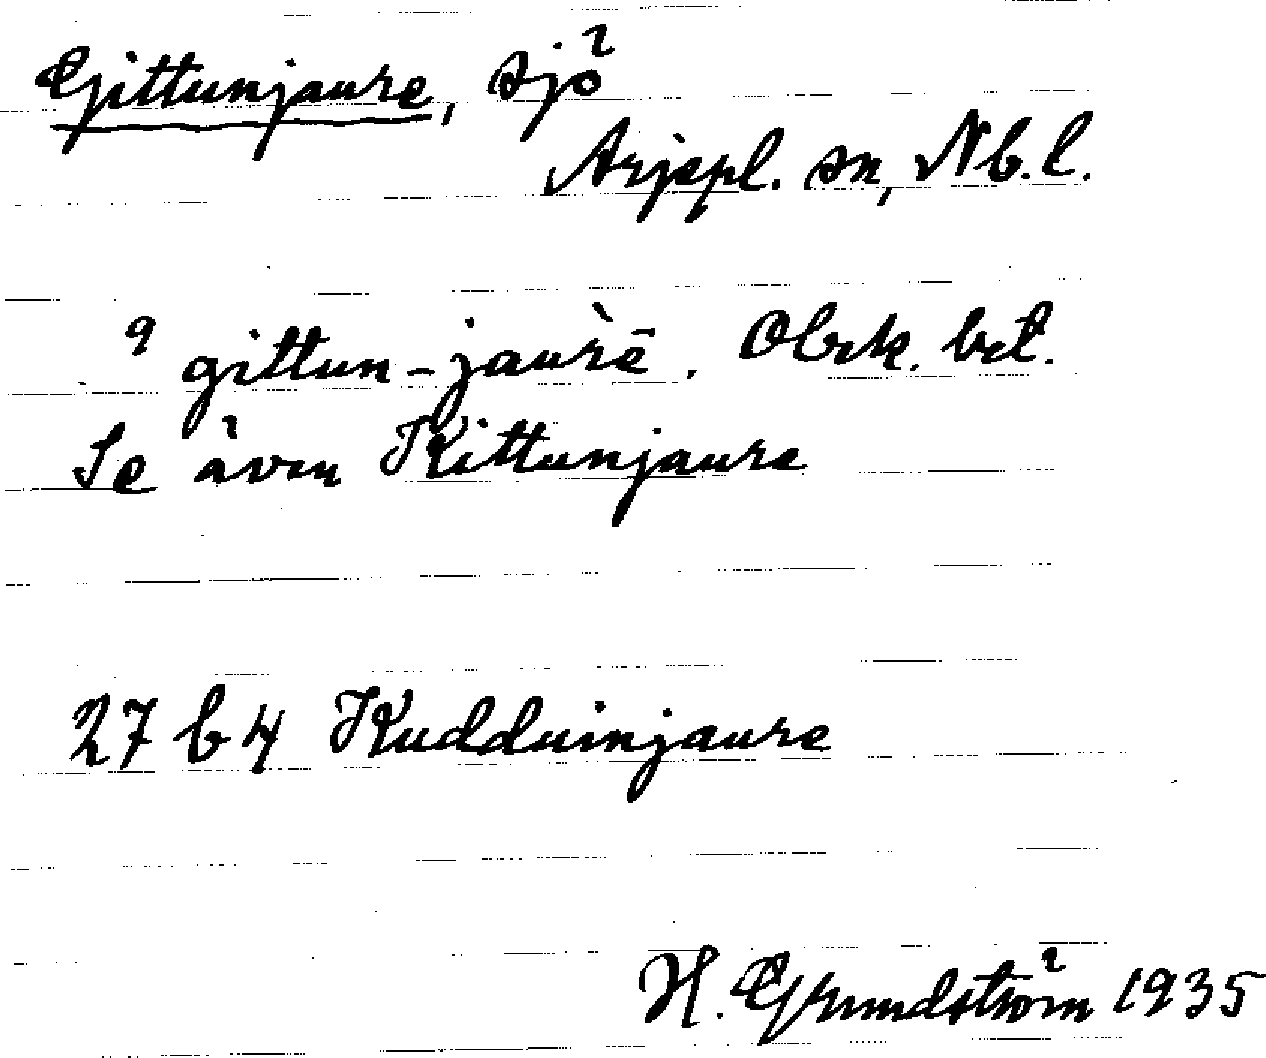 Gittunjaure, sjö
Arjepl. sn, Nb.l.
9 gittun-jau̇̀rē. Obek. bet.
Se även Kittunjaure
27 b 4 Kudduinjaure
H. Grundström 1935